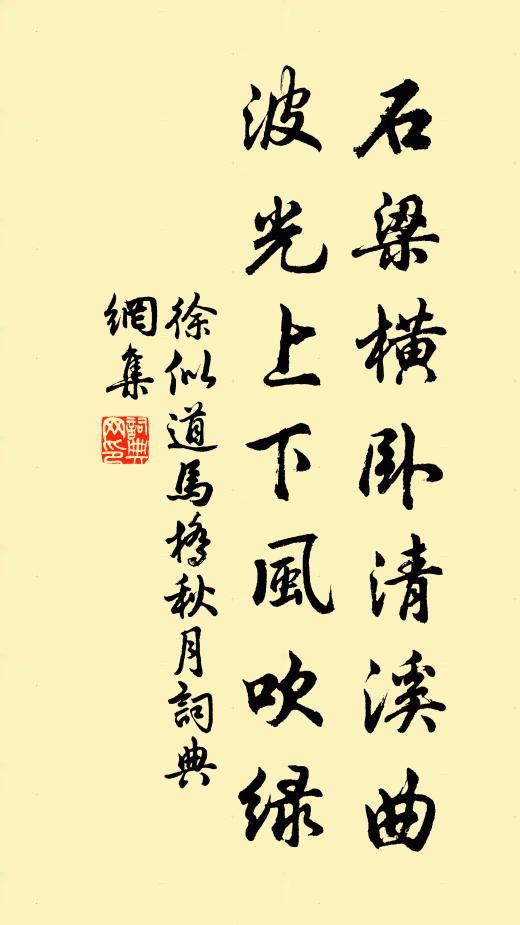 石梁橫卧清溪曲
波光上下風吹緑
徐似道馬橋秋月詞典
網集
詞典網印